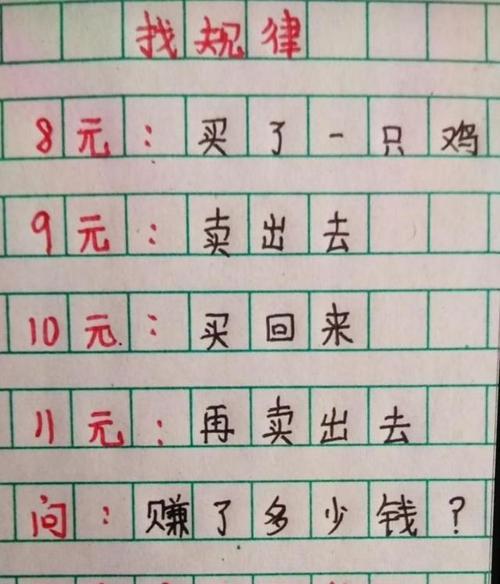 找规律
8元：买了一只鸡
9元：卖出去
10元：买回来
11元：再卖出去
问：赚了多少钱？